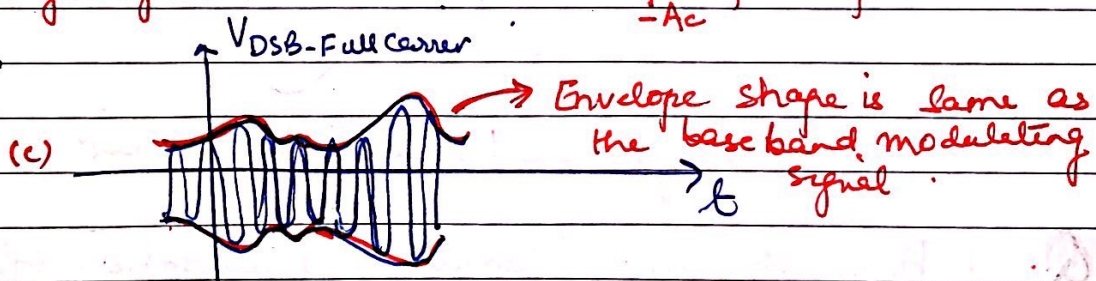 -Ac
VDSB-Full Carrer
Envelope shape is same as
the baseband modulating
signal.
(c)
t